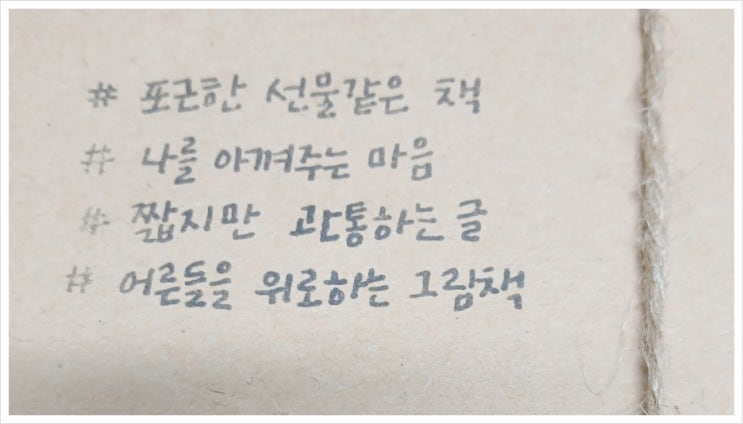 # 포근한 선물같은 책
# 나를 아껴주는 마음
# 짧지만 관통하는 글
# 어른들을 위로하는 그림책